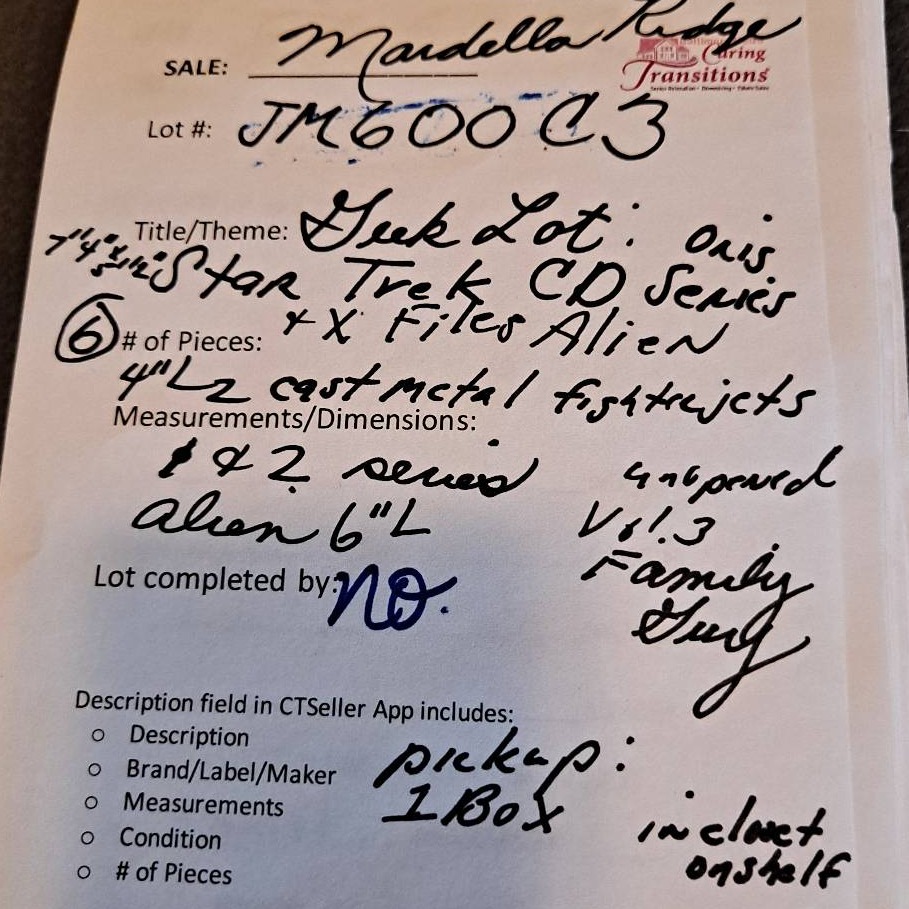 SALE: Mardella Ridge
Caring
Transitions
Lot #: JM600C3
Title/Theme: Geek Lot: Orig
7"4"x
5 1/2" Star Trek CD Series
+ X Files Alien
6 # of Pieces:
4"L 2 cast metal fighterjets
Measurements/Dimensions:
1 & 2 series unopened
alien 6"L Vol. 3
Family
Guy
Lot completed by: NO.
Description field in CTSeller App includes:
○ Description
○ Brand/Label/Maker
○ Measurements
○ Condition
○ # of Pieces
pickup:
1 Box
in closet
on shelf